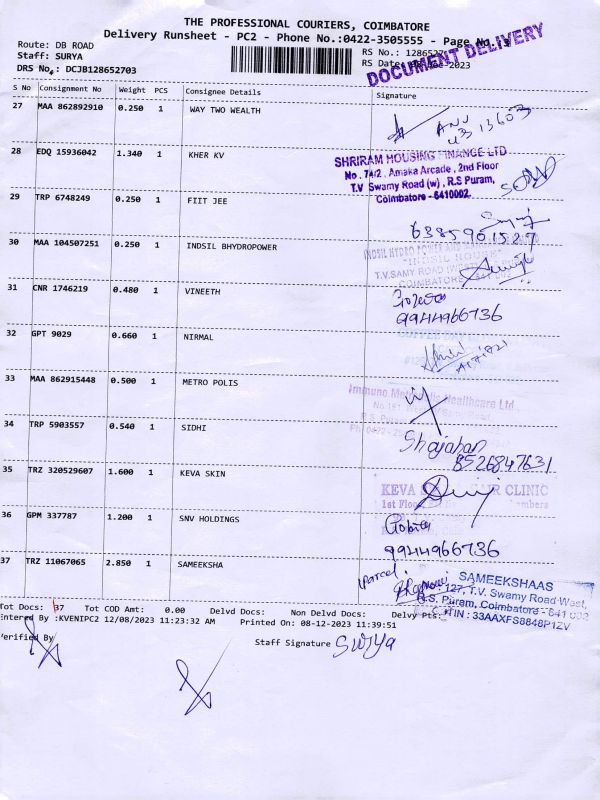 THE PROFESSIONAL COURIERS, COIMBATORE
Delivery Runsheet - PC2 - Phone No.:0422-3505555 - Page No. 3
Route: DB ROAD
Staff: SURYA
DRS No.: DCJB128652703
RS No.: 1286527
RS Date: 2023
DOCUMENT DELIVERY
S No Consignment No Weight PCS Consignee Details Signature
27 MAA 862892910 0.250 1 WAY TWO WEALTH
13603
28 EDQ 15936042 1.340 1 KHER KV
SHRIRAM HOUSING FINANCE LTD
No. 74/2, Amaka Arcade, 2nd Floor
T.V Swamy Road (w), R.S Puram,
Coimbatore - 6410002.
29 TRP 6748249 0.250 1 FIIT JEE
6385901527
30 MAA 104507251 0.250 1 INDSIL BHYDROPOWER
INDSIL HYDRO POWER AND
"INDSIL HOUSE"
T.V.SAMY ROAD
COIMBATORE
31 CNR 1746219 0.480 1 VINEETH
9944966736
32 GPT 9029 0.660 1 NIRMAL
33 MAA 862915448 0.500 1 METRO POLIS
Healthcare Ltd
34 TRP 5903557 0.540 1 SIDHI
Shajahan
8526847631
35 TRZ 320529607 1.600 1 KEVA SKIN
KEVA HAIR CLINIC
1st Floor
36 GPM 337787 1.200 1 SNV HOLDINGS
9944966736
37 TRZ 11067065 2.850 1 SAMEEKSHA
parcel
SAMEEKSHAAS
127, T.V. Swamy Road-West,
R.S. Puram, Coimbatore - 641 002
GTIN : 33AAXFS8848P1ZV
Tot Docs: 37 Tot COD Amt: 0.00 Delvd Docs: Non Delvd Docs: Delvy Pts:
Entered By :KVENIPC2 12/08/2023 11:23:32 AM Printed On: 08-12-2023 11:39:51
Verified By
Staff Signature Surya